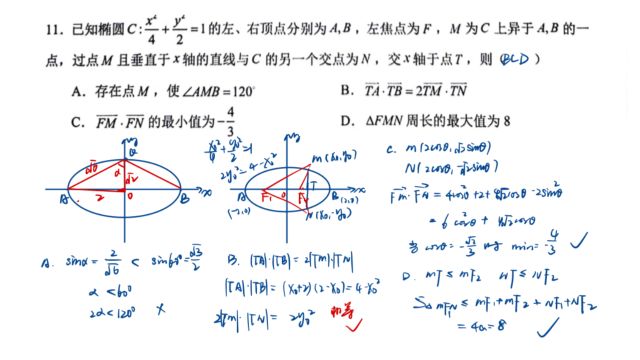 11. 已知椭圆C: x²/4 + y²/2 = 1的左、右顶点分别为A, B，左焦点为F，M为C上异于A, B的一
点，过点M且垂直于x轴的直线与C的另一个交点为N，交x轴于点T，则（BCD）
A. 存在点M，使∠AMB=120°
B. TA·TB=2TM·TN
C. FM·FN的最小值为-4/3
D. ΔFMN周长的最大值为8
y
Q
√6
α
√2
A
2
O
B
x
x₀²/4 + y₀²/2 = 1
2y₀² = 4 - x₀²
y
M(x₀, y₀)
F₁
O
F₂
T
x
(-2,0)
B(2,0)
N(x₀, -y₀)
C. M(2cosθ, √2sinθ)
N(2cosθ, -√2sinθ)
= 6cos²θ + 4√2cosθ
当 cosθ = -√2/3 时 min = -4/3 ✓
A. sinα = 2/√6 < sin60° = √3/2
α < 60°
2α < 120° ×
B. |TA|·|TB| = 2|TM|·|TN|
|TA|·|TB| = (x₀+2)(2-x₀) = 4-x₀²
2|TM|·|TN| = 2y₀² 相等
✓
D. MT ≤ MF₂ NT ≤ NF₂
≤ MF₁ + MF₂ + NF₁ + NF₂
= 4a = 8 ✓